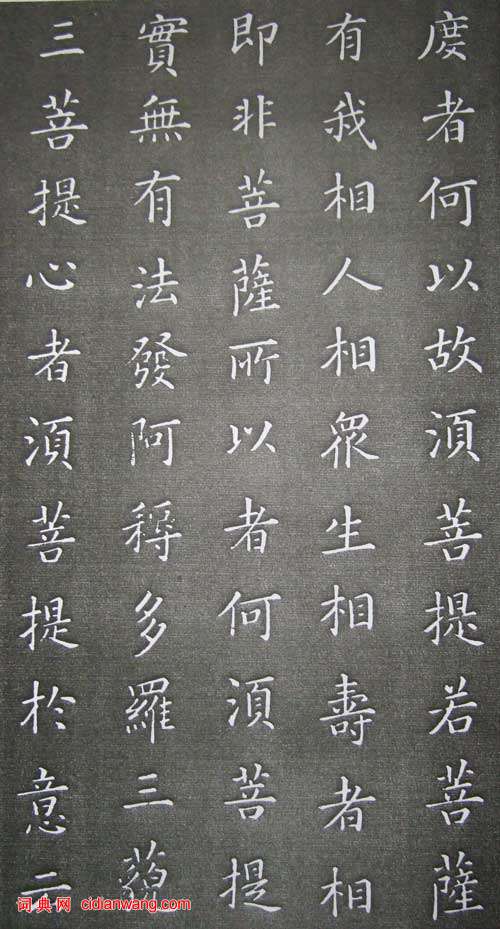 度者何以故湏菩提若菩薩
有我相人相眾生相壽者相
即非菩薩所以者何湏菩提
實無有法發阿耨多羅三藐
三菩提心者湏菩提於意云
词典网 cidianwang.com